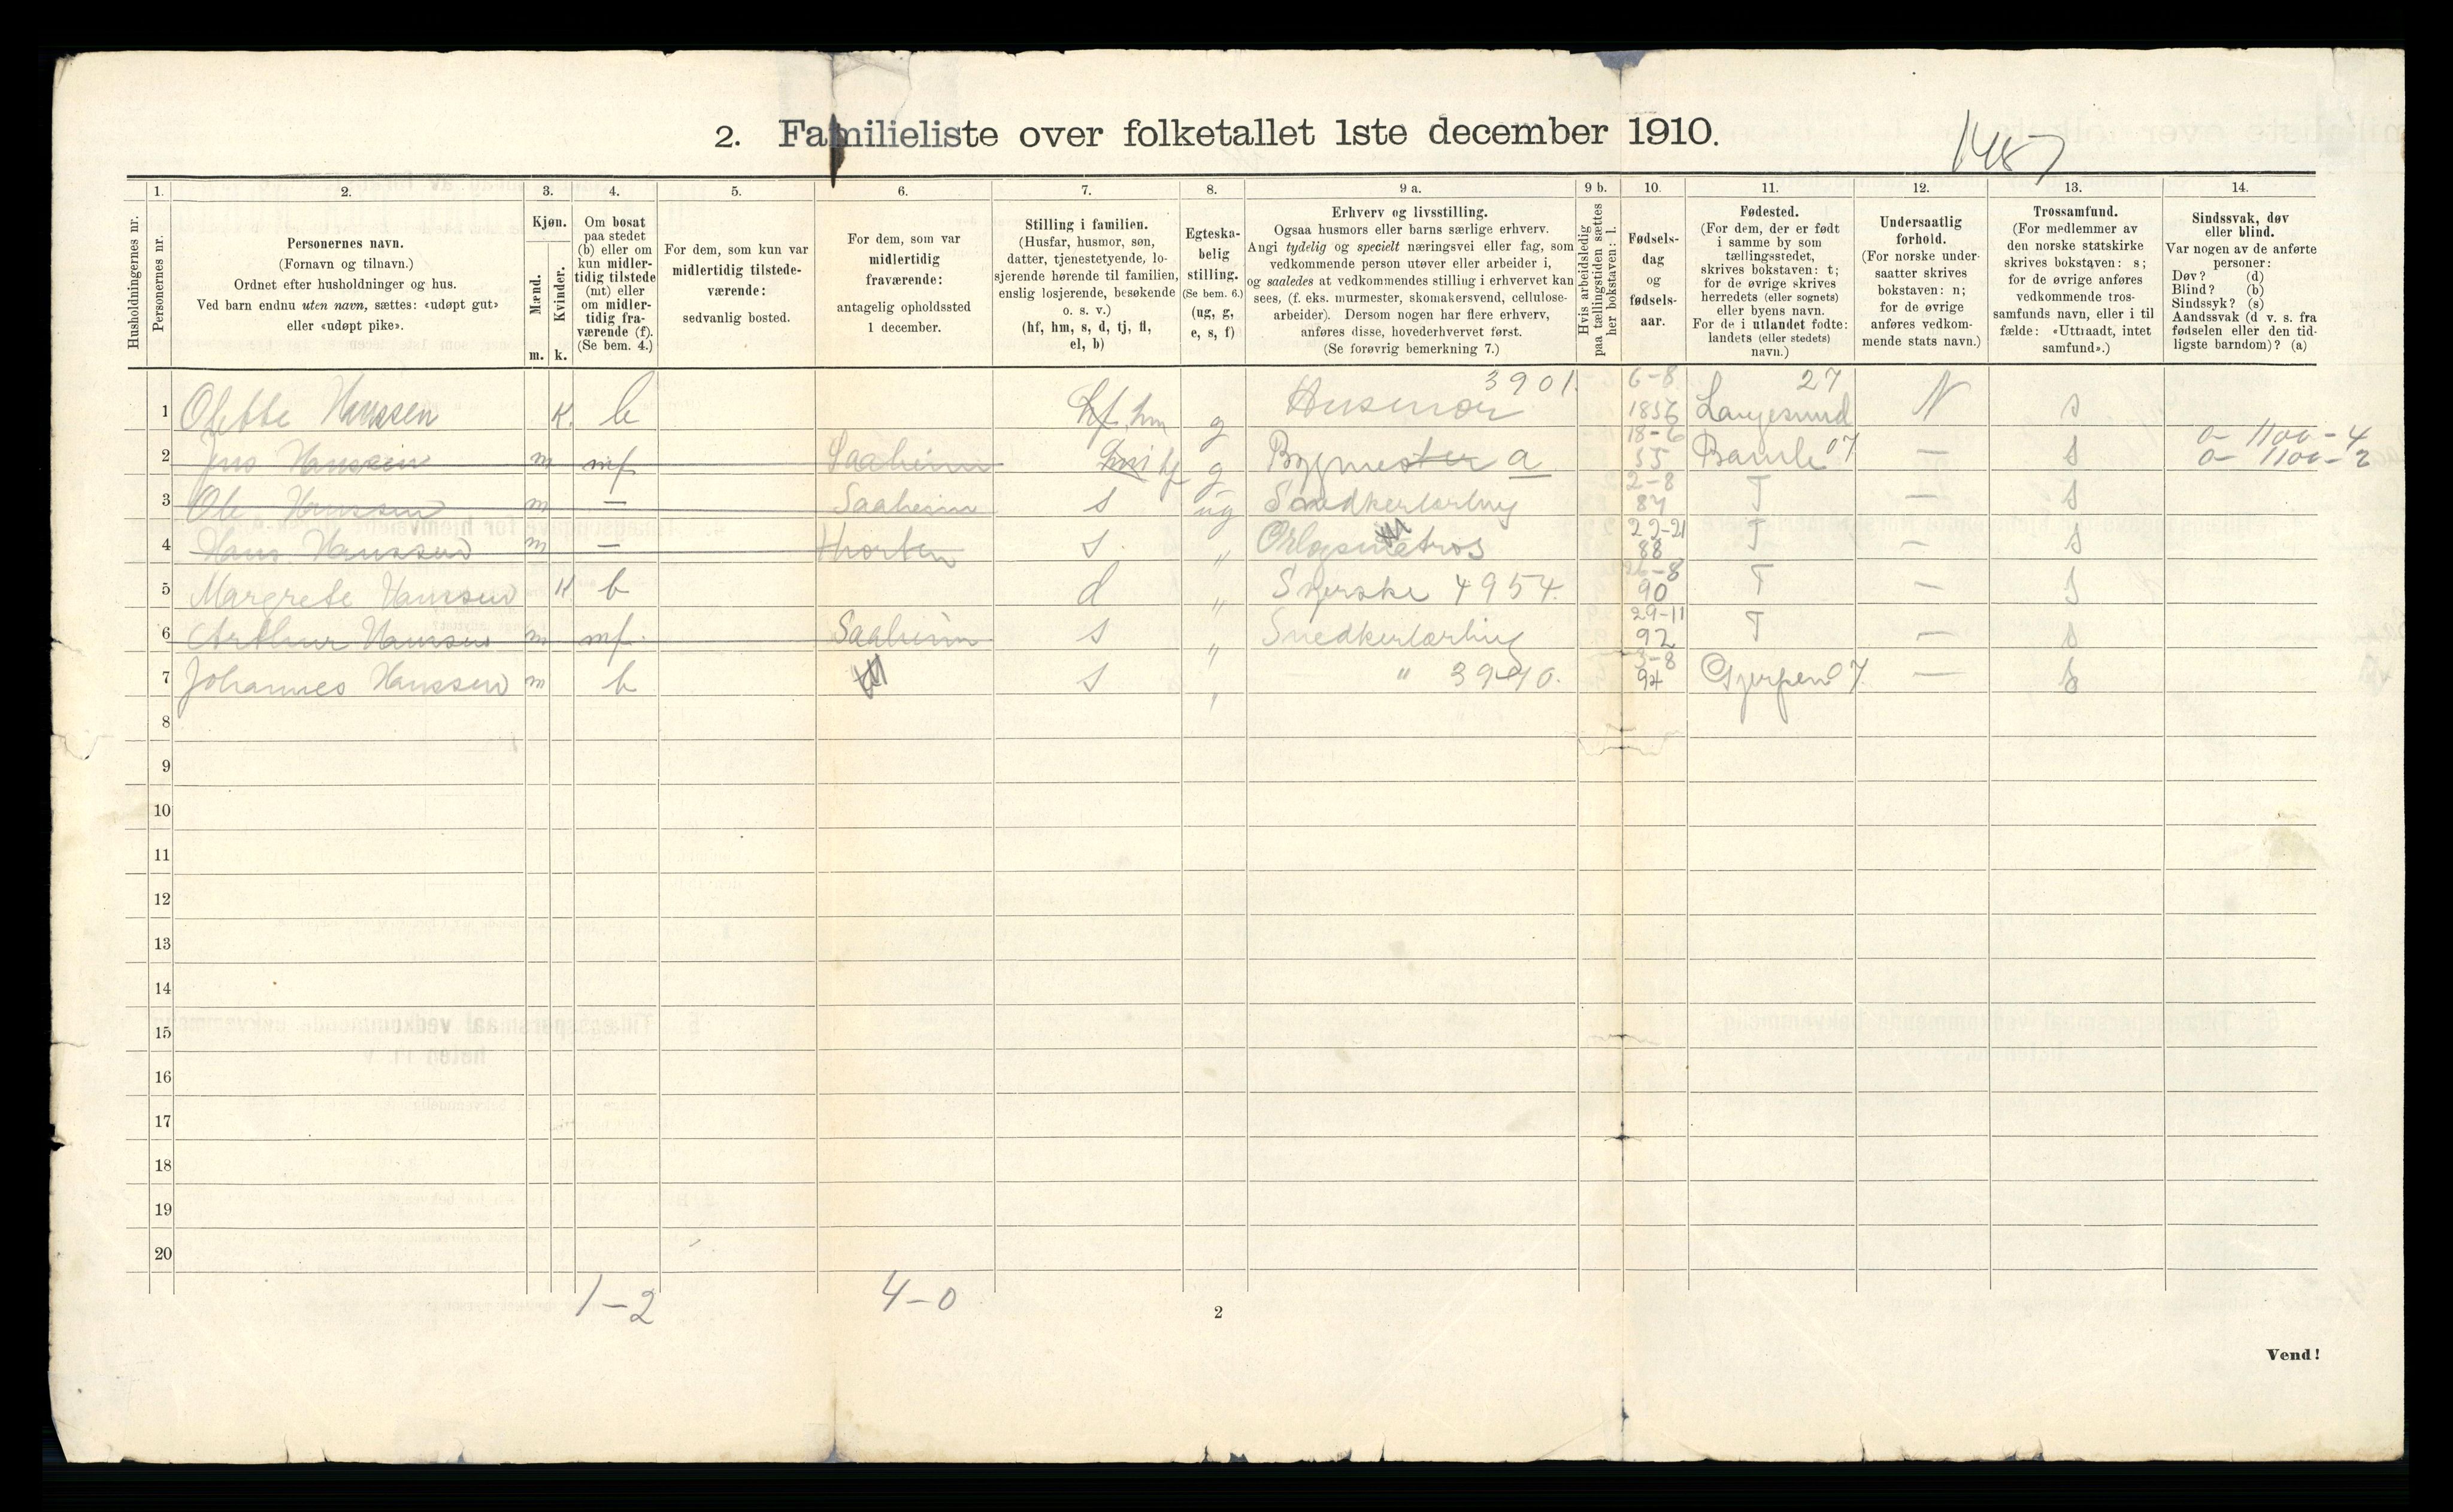 2. Familieliste over folketallet 1ste december 1910.
1487
1. 2. 3. 4. 5. 6. 7. 8. 9 a. 9 b. 10. 11. 12. 13. 14.
Husholdningernes nr.
Personernes nr.
Personernes navn.
(Fornavn og tilnavn.)
Ordnet efter husholdninger og hus.
Ved barn endnu uten navn, sættes: «udøpt gut»
eller «udøpt pike».
Kjøn.
Mænd.
Kvinder.
m. k.
Om bosat
paa stedet
(b) eller om
kun midler-
tidig tilstede
(mt) eller
om midler-
tidig fra-
værende (f).
(Se bem. 4.)
For dem, som kun var
midlertidig tilstede-
værende:
sedvanlig bosted.
For dem, som var
midlertidig
fraværende:
antagelig opholdssted
1 december.
Stilling i familien.
(Husfar, husmor, søn,
datter, tjenestetyende, lo-
sjerende hørende til familien,
enslig losjerende, besøkende
o. s. v.)
(hf, hm, s, d, tj, fl,
el, b)
Egteska-
belig
stilling.
(Se bem. 6.)
(ug, g,
e, s, f)
Erhverv og livsstilling.
Ogsaa husmors eller barns særlige erhverv.
Angi tydelig og specielt næringsvei eller fag, som
vedkommende person utøver eller arbeider i,
og saaledes at vedkommendes stilling i erhvervet kan
sees, (f. eks. murmester, skomakersvend, cellulose-
arbeider). Dersom nogen har flere erhverv,
anføres disse, hovederhvervet først.
(Se forøvrig bemerkning 7.)
Hvis arbeidsledig
paa tællingstiden sættes
her bokstaven: l.
Fødsels-
dag
og
fødsels-
aar.
Fødested.
(For dem, der er født
i samme by som
tællingsstedet,
skrives bokstaven: t;
for de øvrige skrives
herredets (eller sognets)
eller byens navn.
For de i utlandet fødte:
landets (eller stedets)
navn.)
Undersaatlig
forhold.
(For norske under-
saatter skrives
bokstaven: n;
for de øvrige
anføres vedkom-
mende stats navn.)
Trossamfund.
(For medlemmer av
den norske statskirke
skrives bokstaven: s;
for de øvrige anføres
vedkommende tros-
samfunds navn, eller i til
fælde: «Uttraadt, intet
samfund».)
Sindssvak, døv
eller blind.
Var nogen av de anførte
personer:
Døv? (d)
Blind? (b)
Sindssyk? (s)
Aandssvak (d v. s. fra
fødselen eller den tid-
ligste barndom)? (a)
3901. 6-8 27
1 Olette Hanssen K. b hf. hm g Husmor 1856 Langesund N s
18-6 0-1100-4
2 Jens Hanssen m mf Saaheim hm hf g Bygmester a 55 Bamle 07 — s 0-1100-2
2-8
3 Ole Hanssen m — Saaheim s ug Snedkerlærling 87 T — s
22-21
4 Hans Hanssen m — Horten s " Orlogsmatros 88 T — s
26-8
5 Margrete Hanssen K b d " Syerske 4954. 90 T — s
29-11
6 Arthur Hanssen m mf. Saaheim s " Snedkerlærling 92 T — s
3-8
7 Johannes Hanssen m b s " " 3940. 94 Gjerpen 07. — s
8
9
10
11
12
13
14
15
16
17
18
19
20
1-2 4-0
2
Vend!